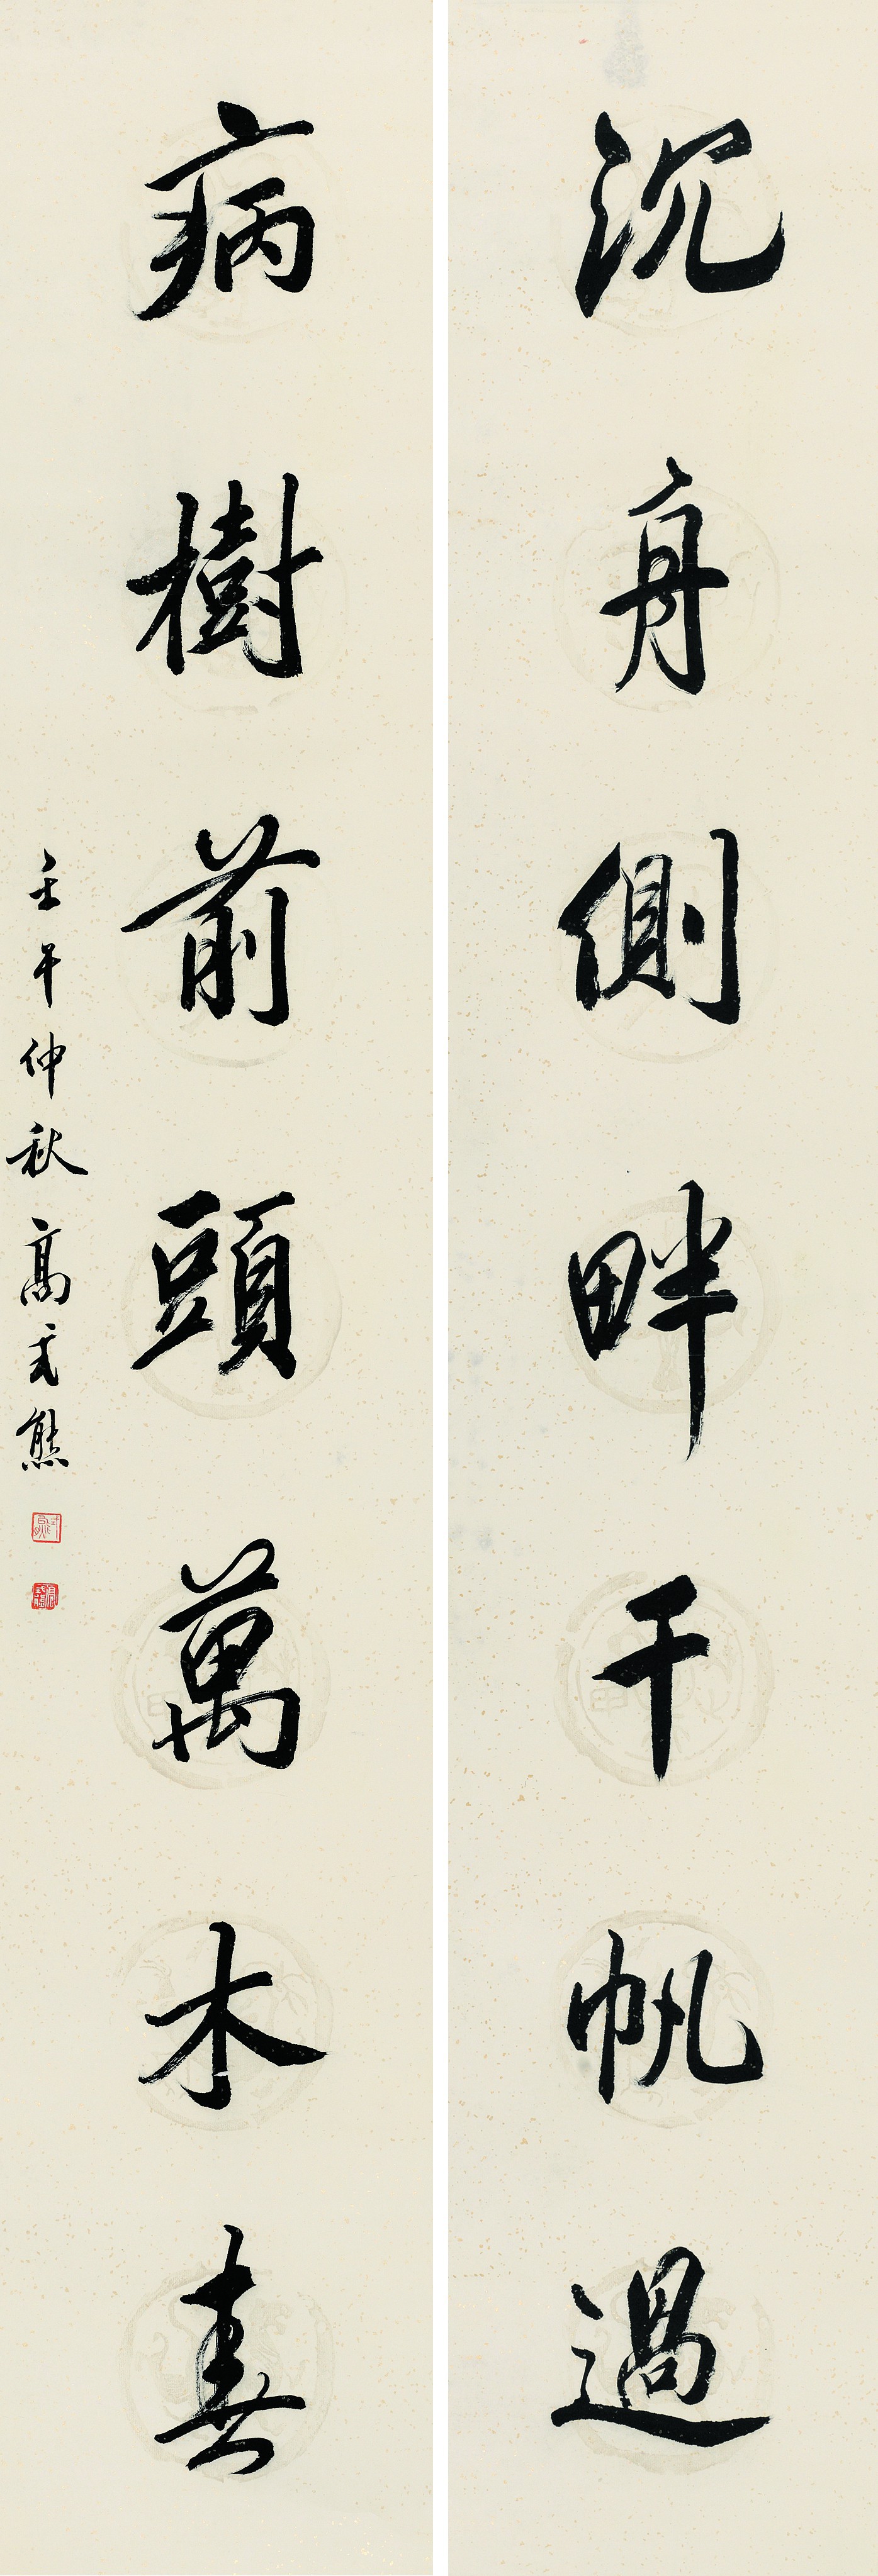 沉舟側畔千帆過
病樹前頭萬木春
壬午仲秋高式熊